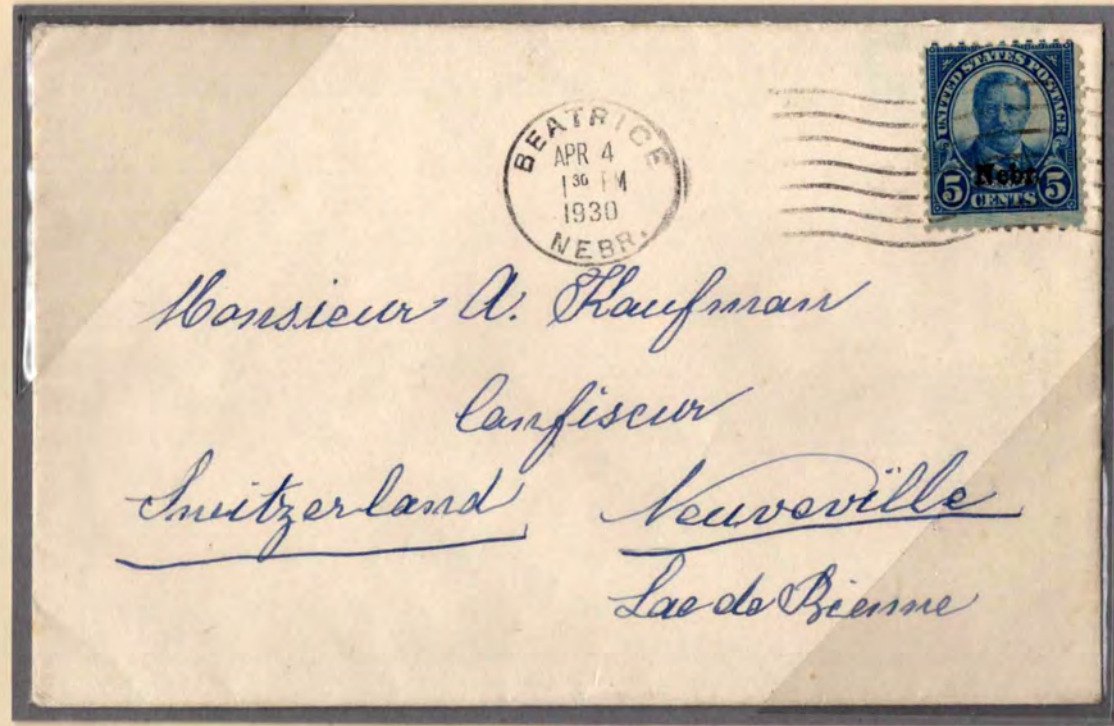 BEATRICE
APR 4
1 30 PM
1930
NEBR.
UNITED STATES POSTAGE
Nebr.
5 CENTS 5
Monsieur A. Kaufman
Confiseur
Switzerland Neuveville
Lac de Bienne